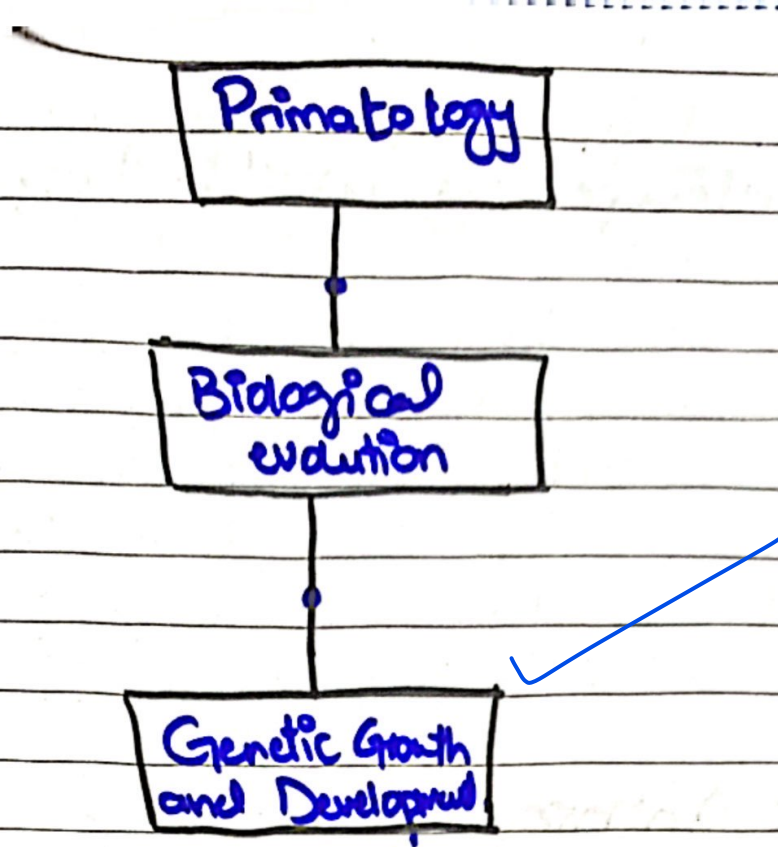 Primatology
Biological
evolution
Genetic Growth
and Development